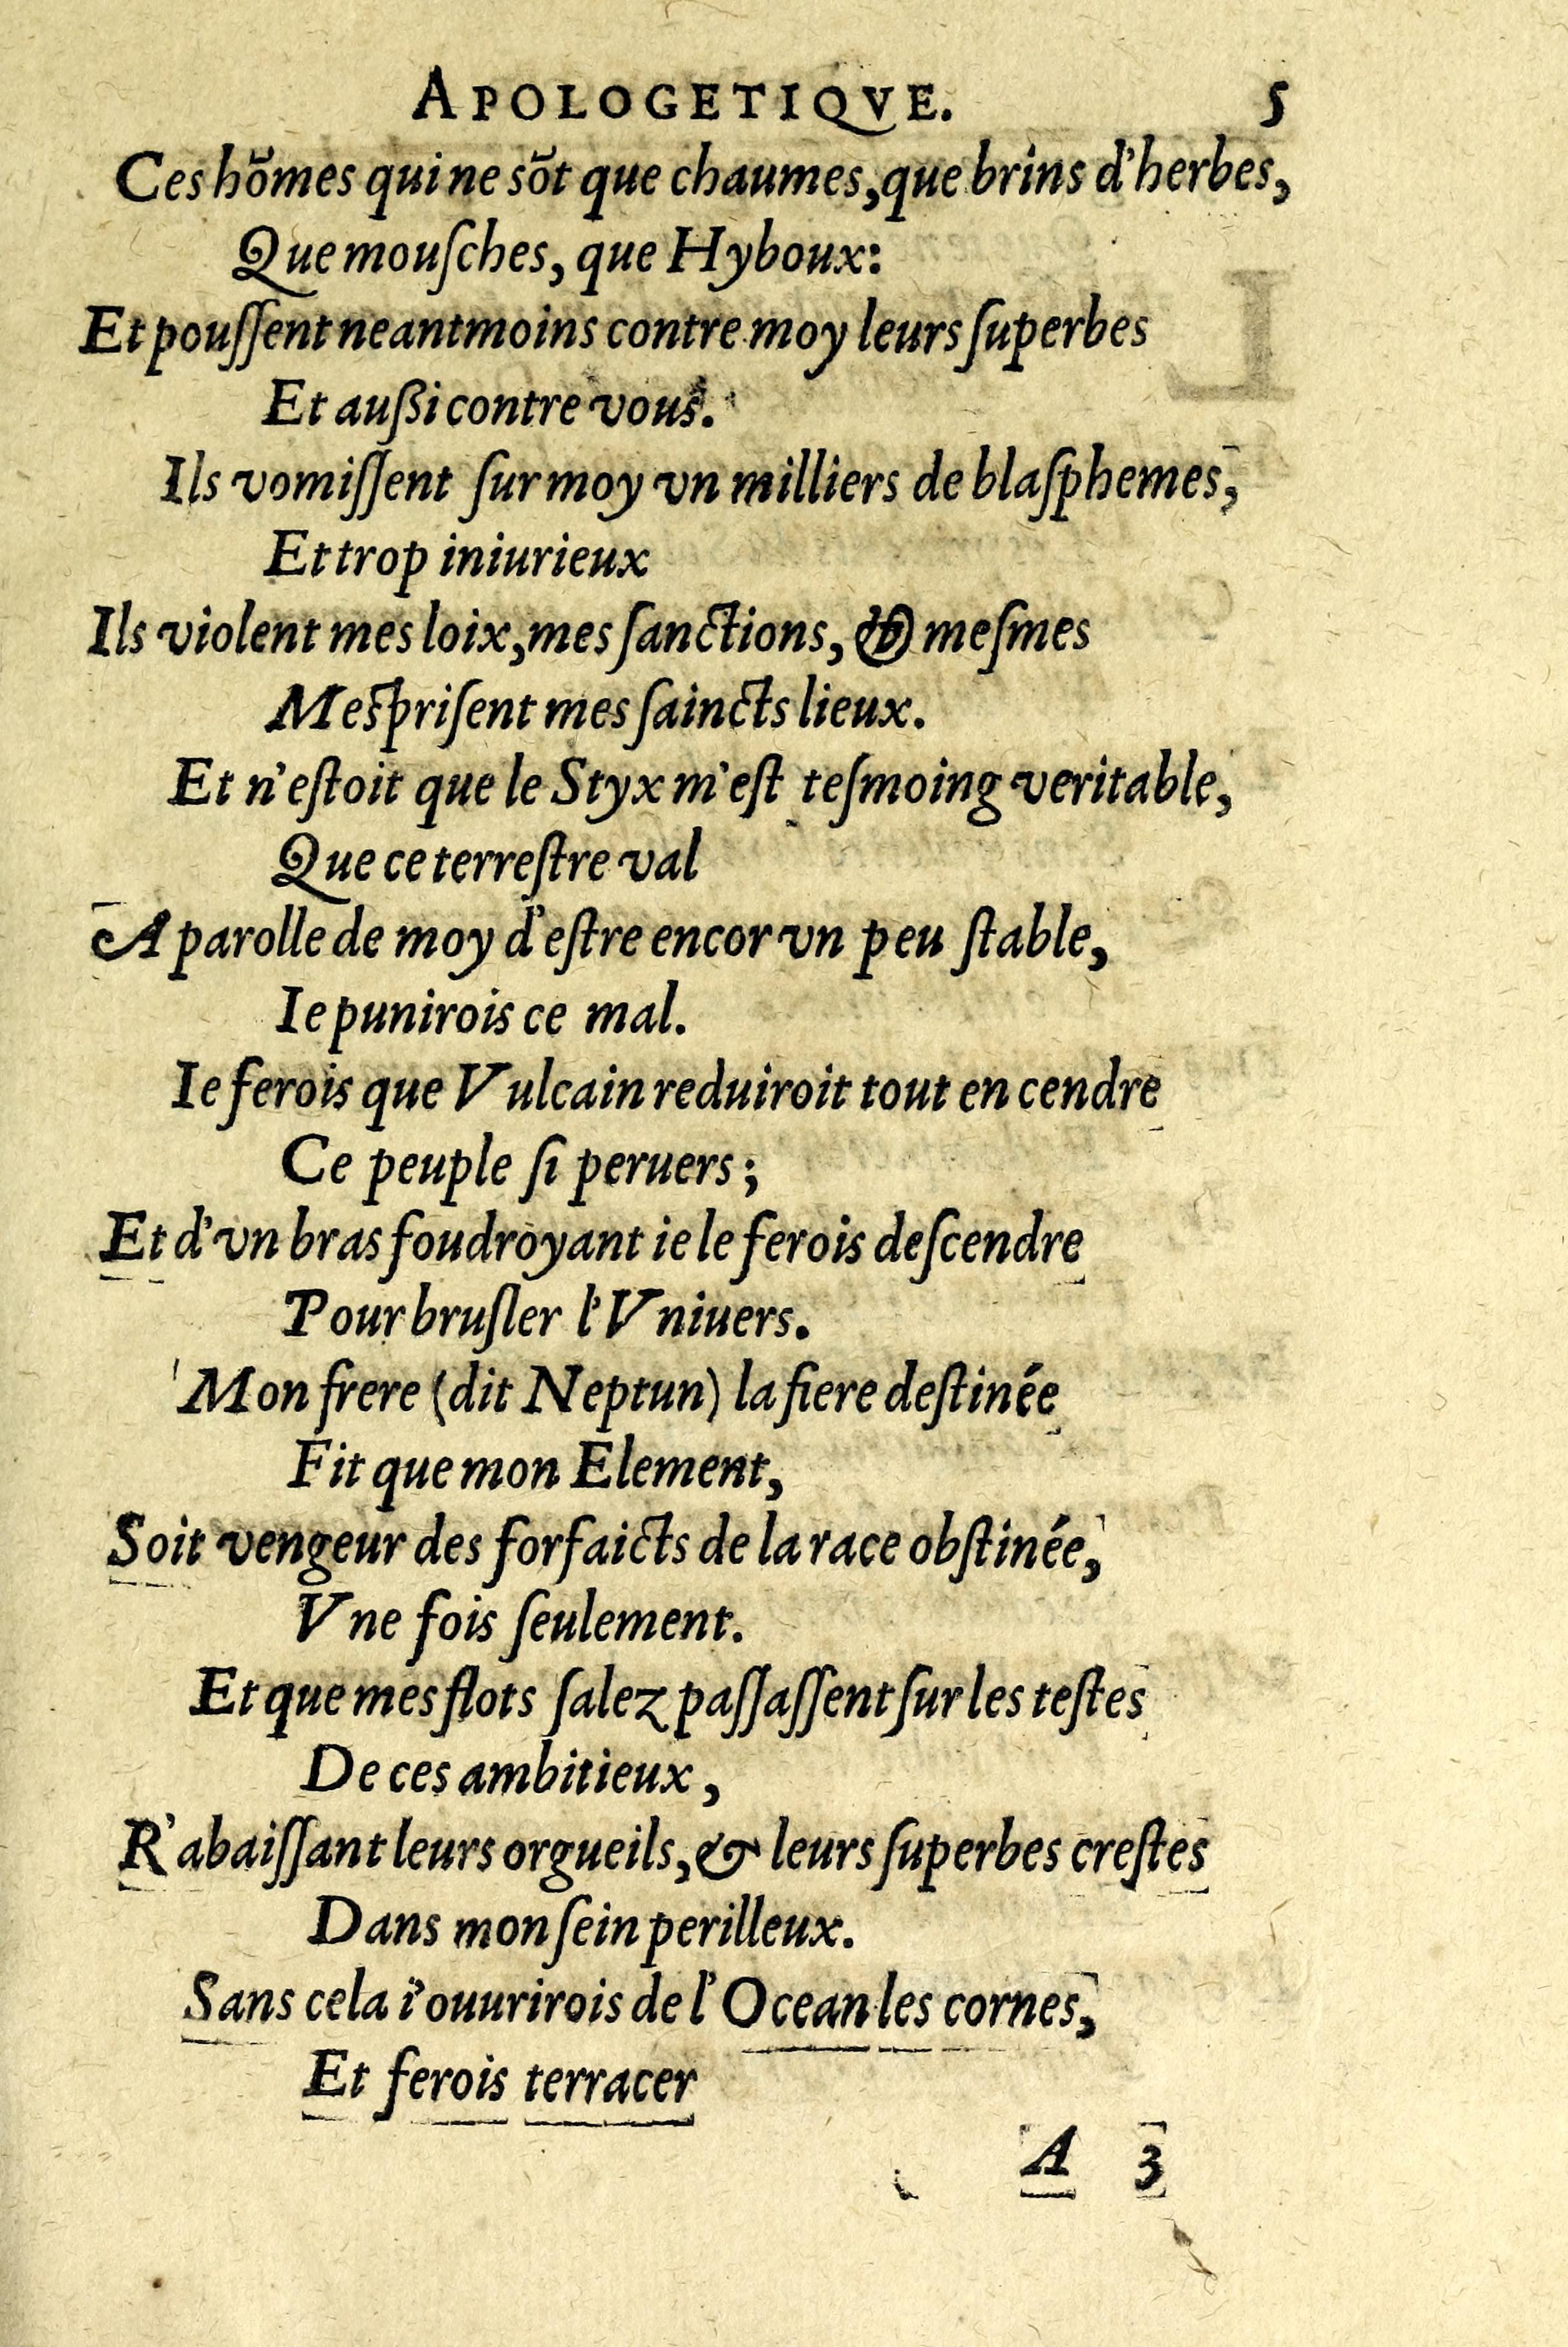 APOLOGETIQVE. 5
Ces hõmes qui ne sõt que chaumes, que brins d'herbes,
Que mouſches, que Hyboux:
Et pouſſent neantmoins contre moy leurs ſuperbes
Et außi contre vous.
Ils vomiſſent ſur moy vn milliers de blaſphemes,
Et trop iniurieux
Ils violent mes loix, mes ſanctions, & meſmes
Mespriſent mes ſaincts lieux.
Et n'eſtoit que le Styx m'eſt teſmoing veritable,
Que ce terreſtre val
A parolle de moy d'eſtre encor vn peu ſtable,
Ie punirois ce mal.
Ie ferois que Vulcain reduiroit tout en cendre
Ce peuple ſi peruers;
Et d'vn bras foudroyant ie le ferois deſcendre
Pour bruſler l'Vniuers.
Mon frere (dit Neptun) la fiere deſtinée
Fit que mon Element,
Soit vengeur des forfaicts de la race obſtinée,
Vne fois ſeulement.
Et que mes flots ſalez paſſaſſent ſur les teſtes
De ces ambitieux,
R'abaiſſant leurs orgueils, & leurs ſuperbes creſtes
Dans mon ſein perilleux.
Sans cela i'ouurirois de l'Ocean les cornes,
Et ferois terracer
A 3